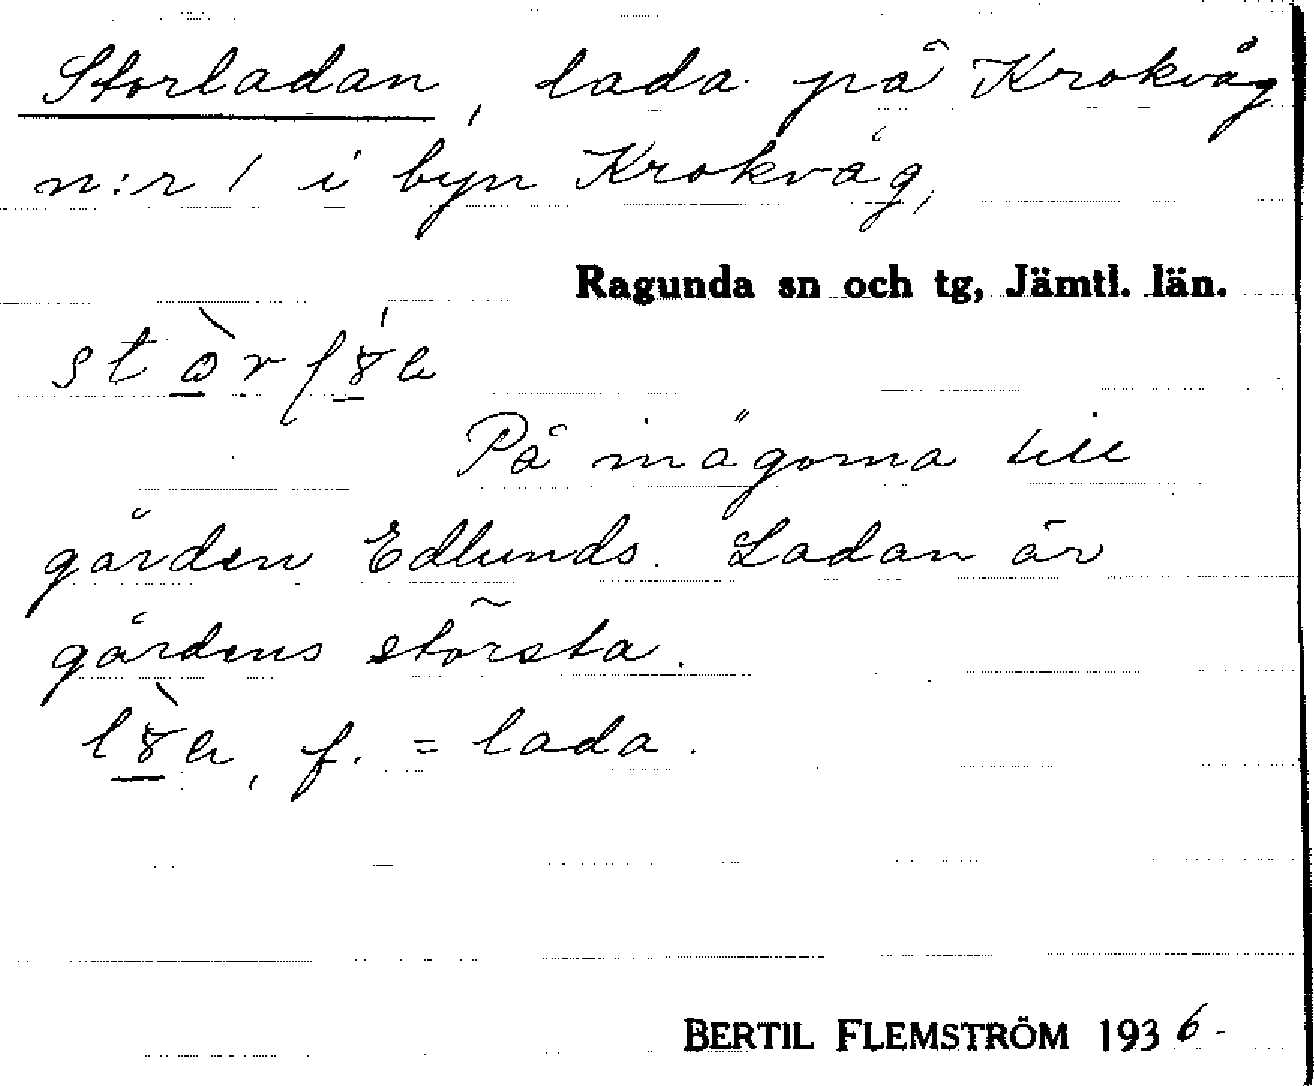 Storladan, lada på Krokvåg
n:r 1 i byn Krokvåg,
Ragunda sn och tg, Jämtl. län.
På inägorna till
gården Edlunds. Ladan är
gårdens största.
f. = lada.
BERTIL FLEMSTRÖM 1936.